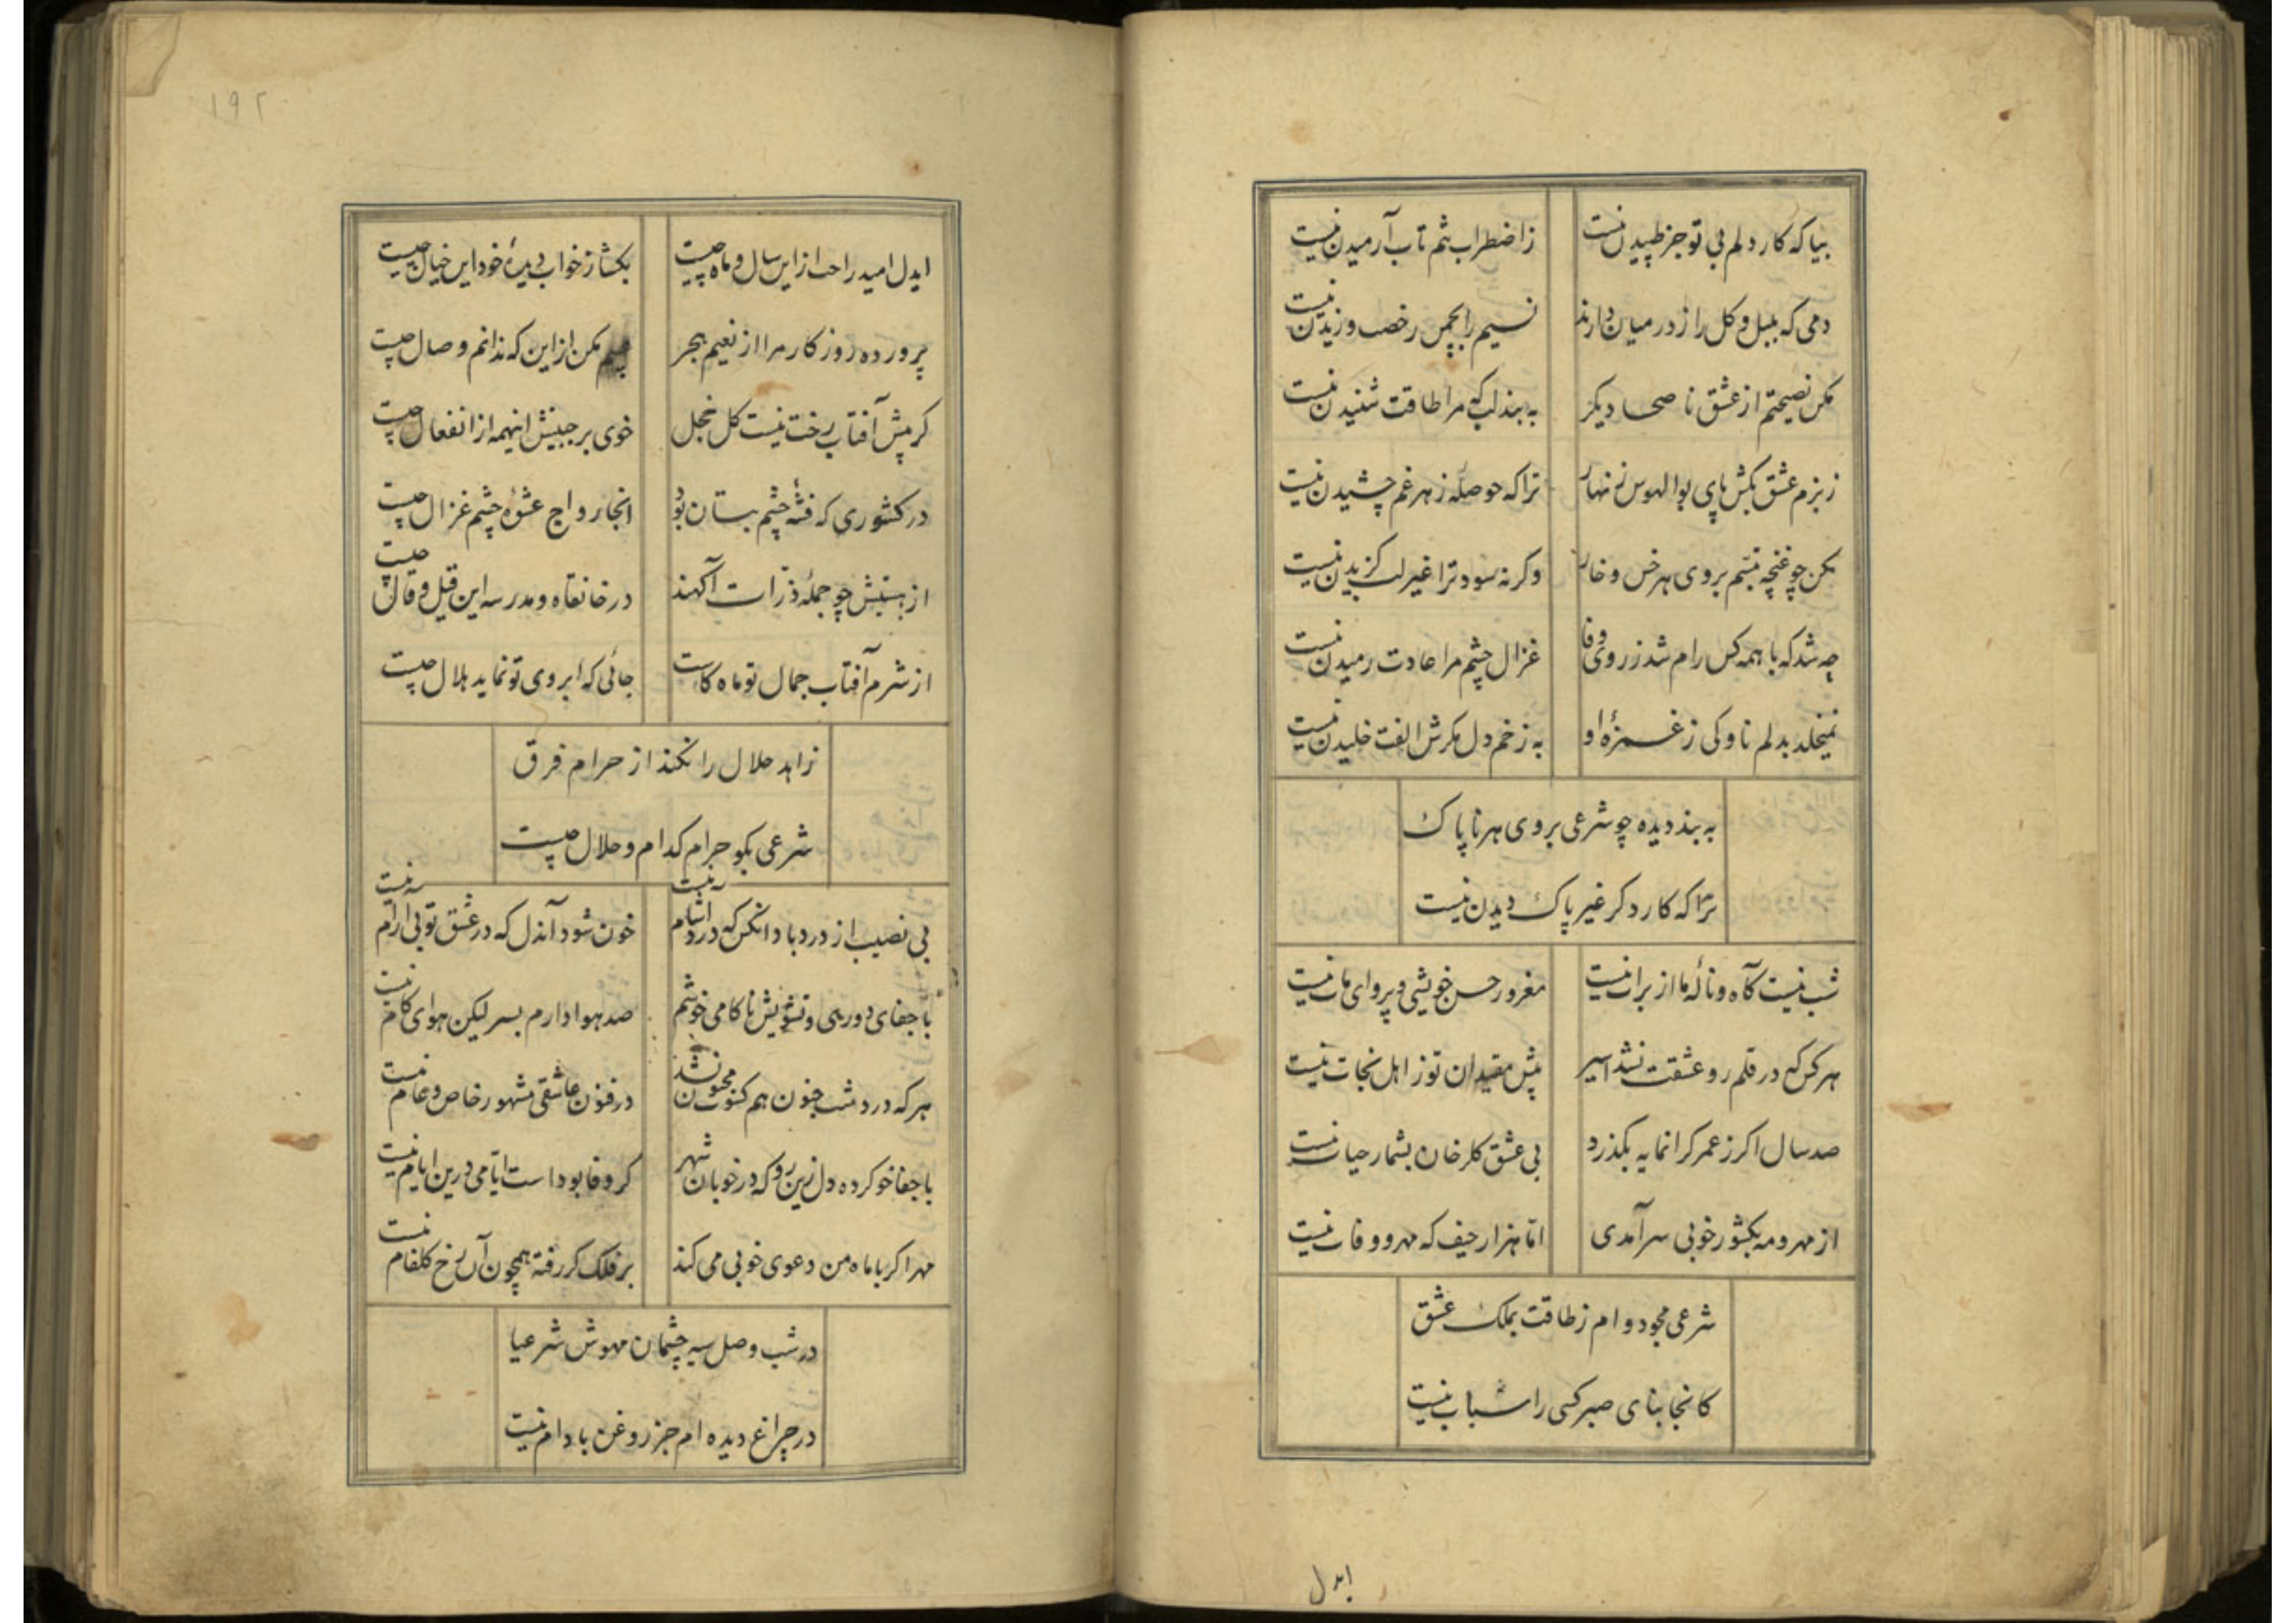 بیا که کار دلم بی تو جز طپیدن نیست
ز اضطراب شم تاب آرمیدن نیست
دمی که بلبل و کل راز در میان دارند
نسیم را بچمن رخصت وزیدن نیست
مکن نصیحتم از عشق ناصحا دیکر
به بند لب که مرا طاقت شنیدن نیست
ز بزم عشق بکش پای بوالهوس زنهار
ترا که حوصلهٔ زهر غم چشیدن نیست
مکن چو غنچه تبسم بروی هر خس و خار
وکرنه سود ترا غیر لب کزیدن نیست
چه شد که با همه کس رام شد ز روی وفا
غزال چشم مرا عادت رمیدن نیست
نمیخلد بدلم ناوکی ز غمزهٔ او
به زخم دل مکرش الفت خلیدن نیست
به بند دیده چو شرعی بروی هر ناپاک
ترا که کار دکر غیر پاک دیدن نیست
شب نیست کآه و نالهٔ ما از برات نیست
مغرور حسن خویشی و پروای مات نیست
هر کس که در قلمرو عشقت نشد اسیر
پیش مقیدان تو ز اهل نجات نیست
صد سال اکر ز عمر کرانمایه بکذرد
بی عشق کلرخان بشمار حیات نیست
از مهر و مه بکشور خوبی سر آمدی
اما هزار حیف که مهر و وفات نیست
شرعی مجو دوام ز طاقت بملک عشق
کانجا بنای صبر کسی را ثبات نیست
ایدل
۱۹۲
ایدل امید راحت از این سال و ماه چیست
بکشا ز خواب دیدهٔ خود این خیال چیست
پرورده روزکار مرا از نعیم هجر
مکن از این که ندانم وصال چیست
کر پیش آفتاب رخت نیست کل خجل
خوی بر جبینش اینهمه از انفعال چیست
در کشوری که فتنهٔ چشم بتان بود
آنجا رواج عشوهٔ چشم غزال چیست
از هستیش چو جملهٔ ذرات آکهند
در خانقاه و مدرسه این قیل و قال چیست
از شرم آفتاب جمال تو ماه کاست
جائی که ابروی تو نماید هلال چیست
زاهد حلال را نکند از حرام فرق
شرعی بکو حرام کدام و حلال چیست
بی نصیب از درد باد آنکس که درد آشام نیست
خون شود آندل که در عشق تو بی آرام نیست
با جفای دوری و تشویش ناکامی خوشم
صد هوا دارم بسر لیکن هوای کام نیست
هر که در دشت جنون هم مجنون نشد
در فنون عاشقی مشهور خاص و عام نیست
با جفا خو کرده دل زین رو که در خوبان شهر
کر وفا بوداست ایامی درین ایام نیست
مهر اکر با ماه من دعوی خوبی می کند
بر فلک کر رفته همچون آن رخ کلفام نیست
در شب وصل سیه چشمان مهوش شرعیا
در چراغ دیده ام جز روغن بادام نیست